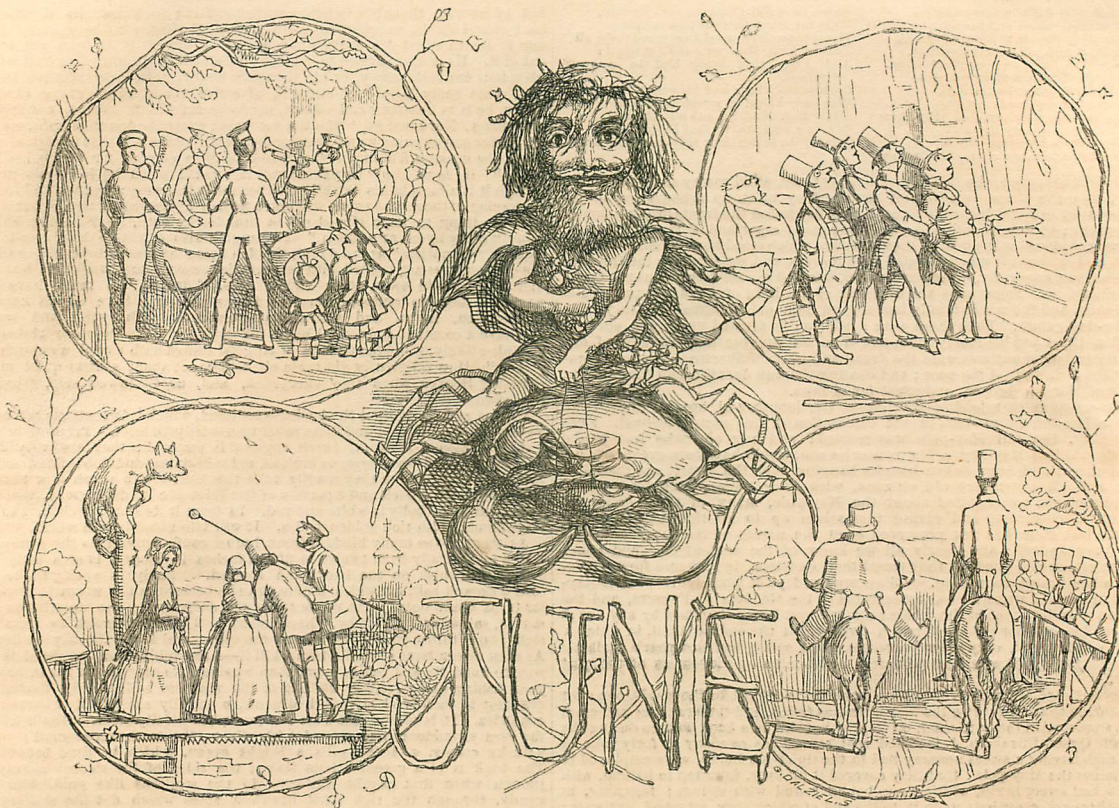 JUNE
DALZIEL.S